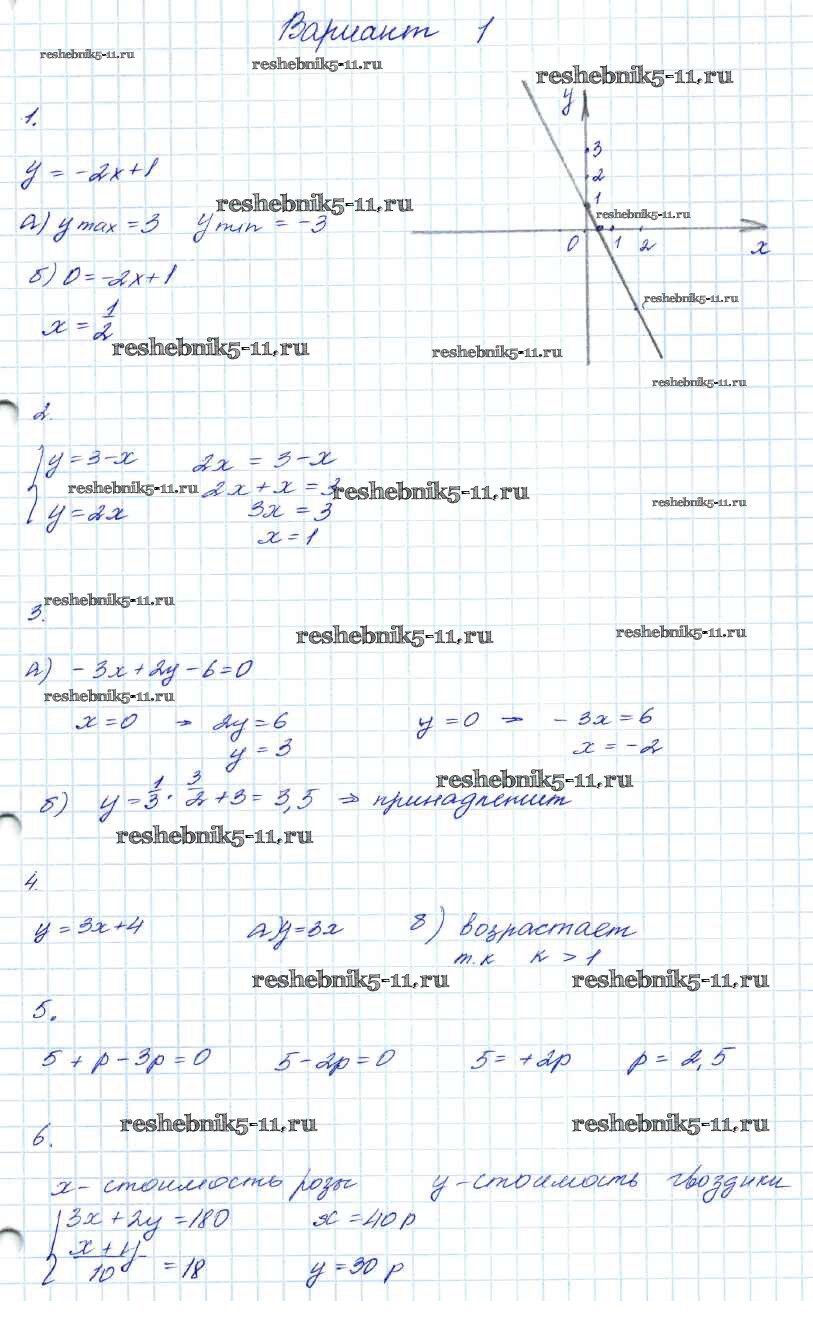 Вариант 1
reshebnik5-11.ru
reshebnik5-11.ru
reshebnik5-11.ru
1.
y
3
2
1
0 1 2 x
y = -2x+1
reshebnik5-11.ru
reshebnik5-11.ru
а) y max = 3 y min = -3
б) 0 = -2x+1
x = 1/2
reshebnik5-11.ru
reshebnik5-11.ru
reshebnik5-11.ru
reshebnik5-11.ru
2.
y = 3-x 2x = 3-x
reshebnik5-11.ru 2x + x = 3 reshebnik5-11.ru
reshebnik5-11.ru
y = 2x 3x = 3
x = 1
reshebnik5-11.ru
3.
reshebnik5-11.ru
reshebnik5-11.ru
а) -3x + 2y - 6 = 0
reshebnik5-11.ru
x = 0 → 2y = 6 y = 0 → -3x = 6
y = 3 x = -2
reshebnik5-11.ru
б) y = 1/3 · 3/2 + 3 = 3,5 ⇒ принадлежит
reshebnik5-11.ru
4.
y = 3x+4 а) y = 3x в) возрастает
т.к k > 1
reshebnik5-11.ru
reshebnik5-11.ru
5.
5 + p - 3p = 0 5 - 2p = 0 5 = +2p p = 2,5
reshebnik5-11.ru
reshebnik5-11.ru
6.
x - стоимость розы y - стоимость гвоздики
3x + 2y = 180 x = 40 р
(x + y)/10 = 18 y = 30 р